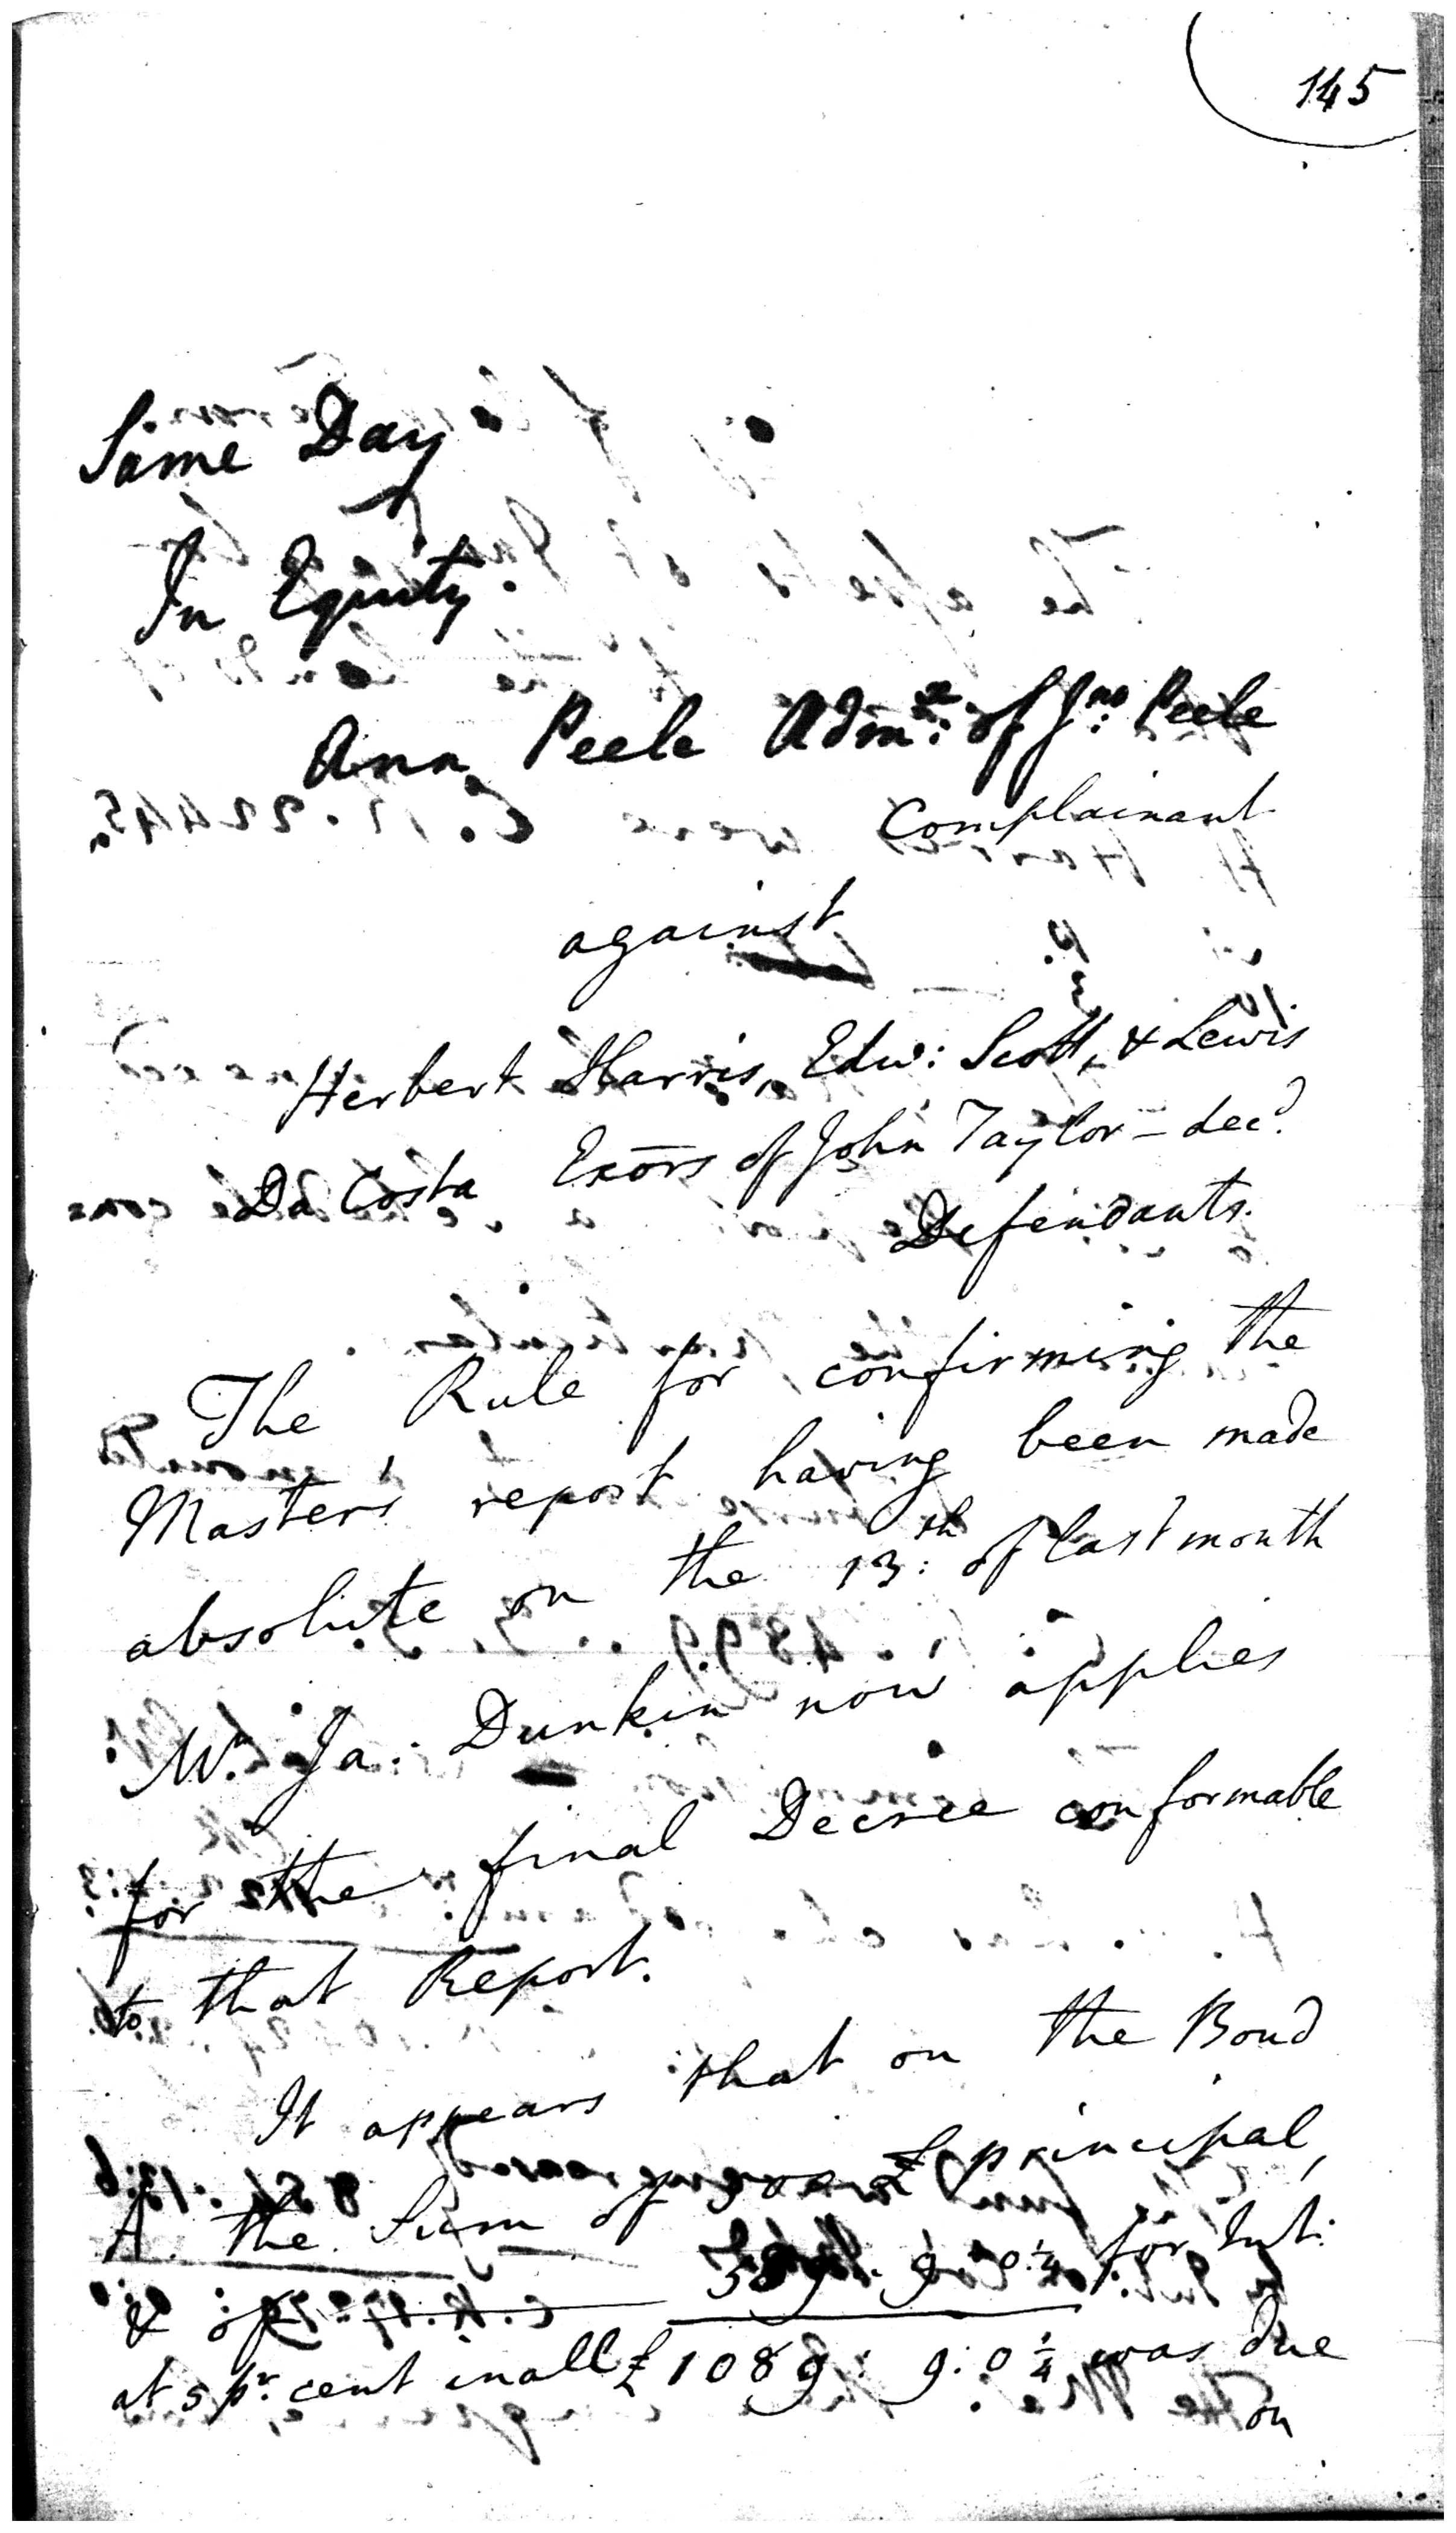 145
Same Day
In Equity.
Ann Peele Adm.x: of Jno: Peele
Complainant
against
Herbert Harris, Edw: Scott, & Lewis
Da Costa Exōrs of John Taylor - decd.
Defendants.
The Rule for confirming the
Master's report having been made
absolute on the 13:th of last month
Mr. Ja: Dunkin now applies
for the final Decree conformable
to that Report.
It appears that on the Bond
A. the Sum of £ principal,
& of 589. 9. 0 1/4 for Int:
at 5 pr. cent in all £1089: 9: 0 1/4 was due
on